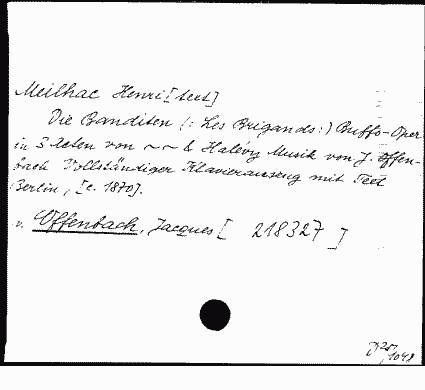 Meilhac Henri [text]
Die Banditen (: Les Brigands :) Buffo-Oper
in 3 Acten von ~ ~ & Halévy Musik von J. Offen-
bach Vollständiger Klavierauszug mit Text
Berlin, [c. 1870].
v. Offenbach, Jacques [ 218327 ]